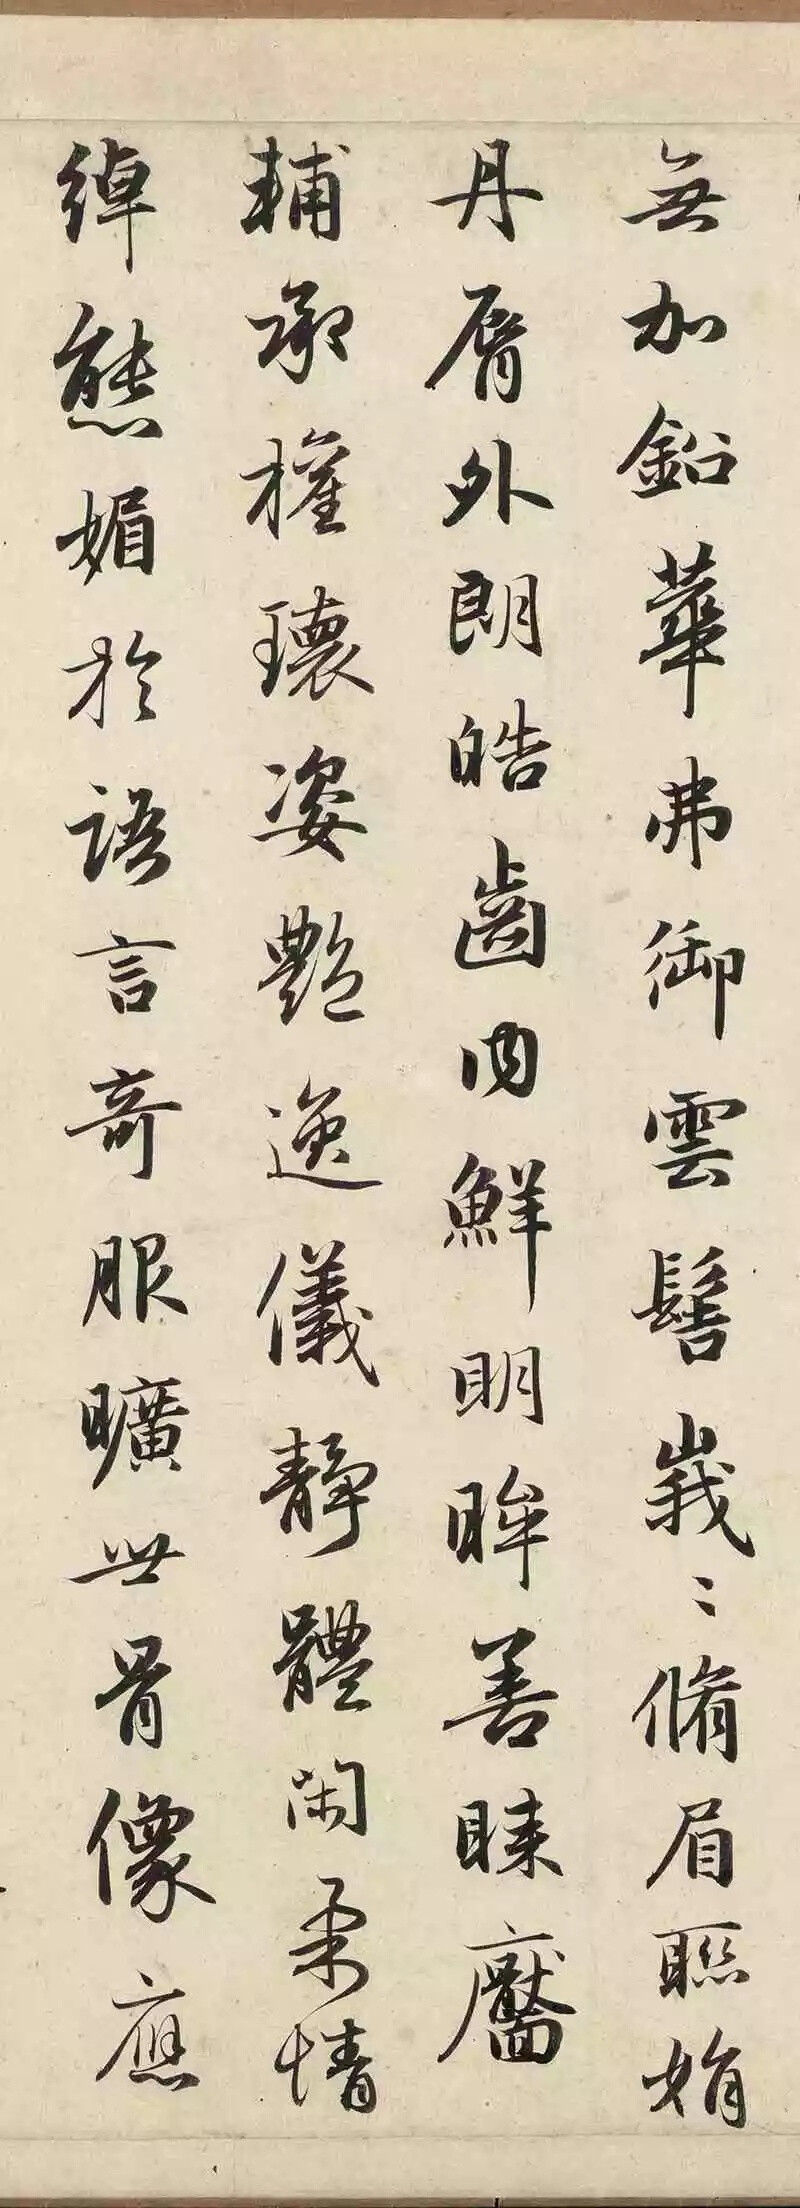 無加鉛華弗御雲髻峩〻脩眉聮娟
丹脣外朗皓齒内鮮明眸善睞靨
輔承權瓌姿艷逸儀靜體閑柔情
綽態媚於語言奇服曠世骨像應